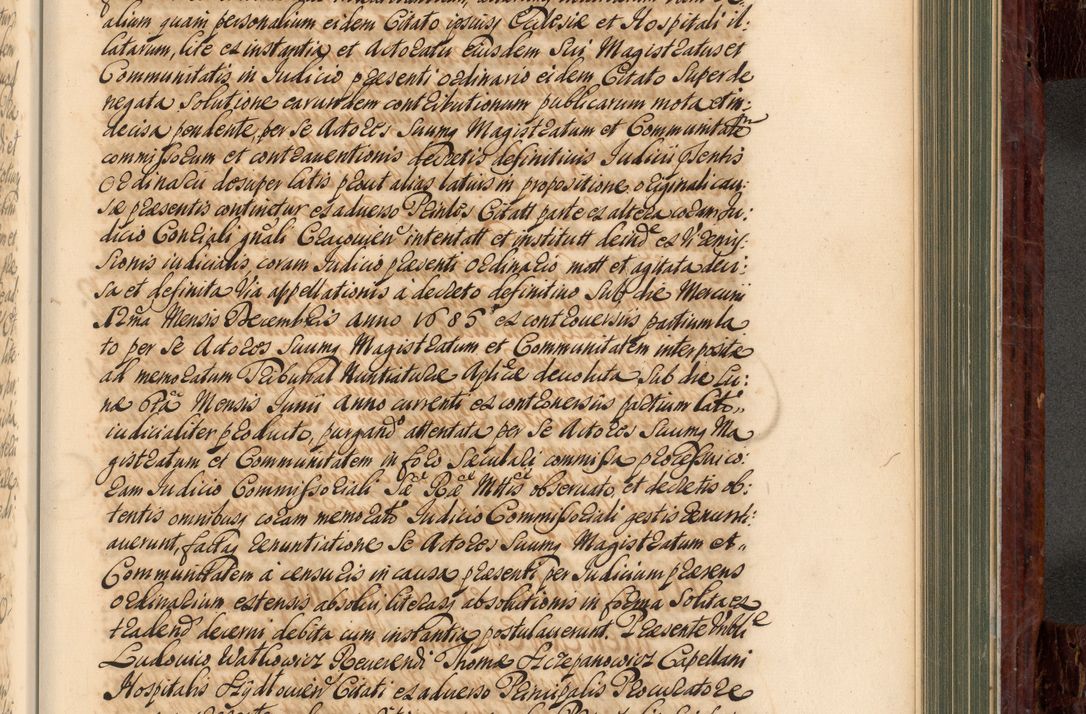 alium quam personalium eidem Citato ipsiusq Ecclesiæ et Hospitali il:
latarum, lite et instantia et Actoratu eiusdem sui Magistratus et
Communitatis in Iudicio præsenti ordinario eidem Citato super de
negata solutione earundem contributionum publicarum mota et in:
decisa pendente, per se Actores suumq Magistratum et Communitatem
commissorum et contraventionis decretis definitivis Iudicii pñtis
Ordinarii desuper latis prout alias latius in propositione originali cau:
sæ præsentis continetur ex adverso Prinlis Citati parte ex altera coram Iu:
dicio Consiali gñali Cracovien intentatt et institutt deinde ex Remis:
sionis iudicialis coram Iudicio præsenti ordinario mott et agitata deci:
sa et definita Via appellationis a decreto definitivo sub die Mercurii
12ma Mensis Decembris anno 1685o ex controversiis partium la
to per se Actores suumq Magistratum et Communitatem interpositæ
ad memoratum Tribunal Nuntiaturæ Aplicæ devoluta sub die Lu:
næ Mensis Iunii anno currenti ex controversiis partium lato
iudicialiter producto, purgando attentata per se Actores suumq Ma
gistratum et Communitatem in foro sæculari commissa processu co:
ram Iudicio Commissoriali Sæ Ræ Mttis observato, et decretis ob:
tentis omnibusq coram memorato Iudicio Commissoriali gestis renunti:
averunt, factaq renuntiatione se Actores suumq Magistratum et
Communitatem a censuris in causa præsenti per Iudicium præsens
ordinarium extensis absolvi, literasq absolutionis in forma solita ex
tradendo decerni debita cum instantia postulaverunt. Præsente Nobli
Ludovico Watkowicz Reverendi Thomæ Szczepanowicz Capellani
Hospitalis Szydlovien Citati ex adverso Principalis Procuratore